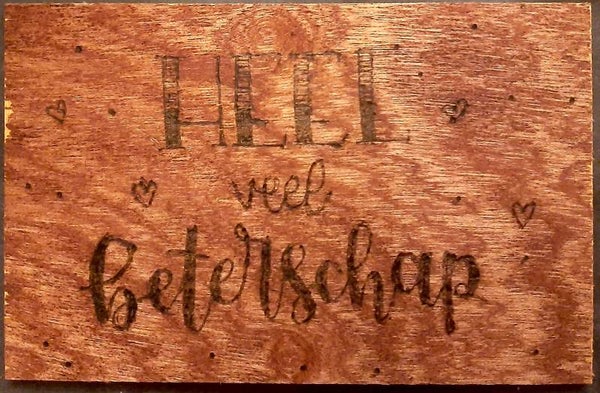 HEEL
veel
beterschap